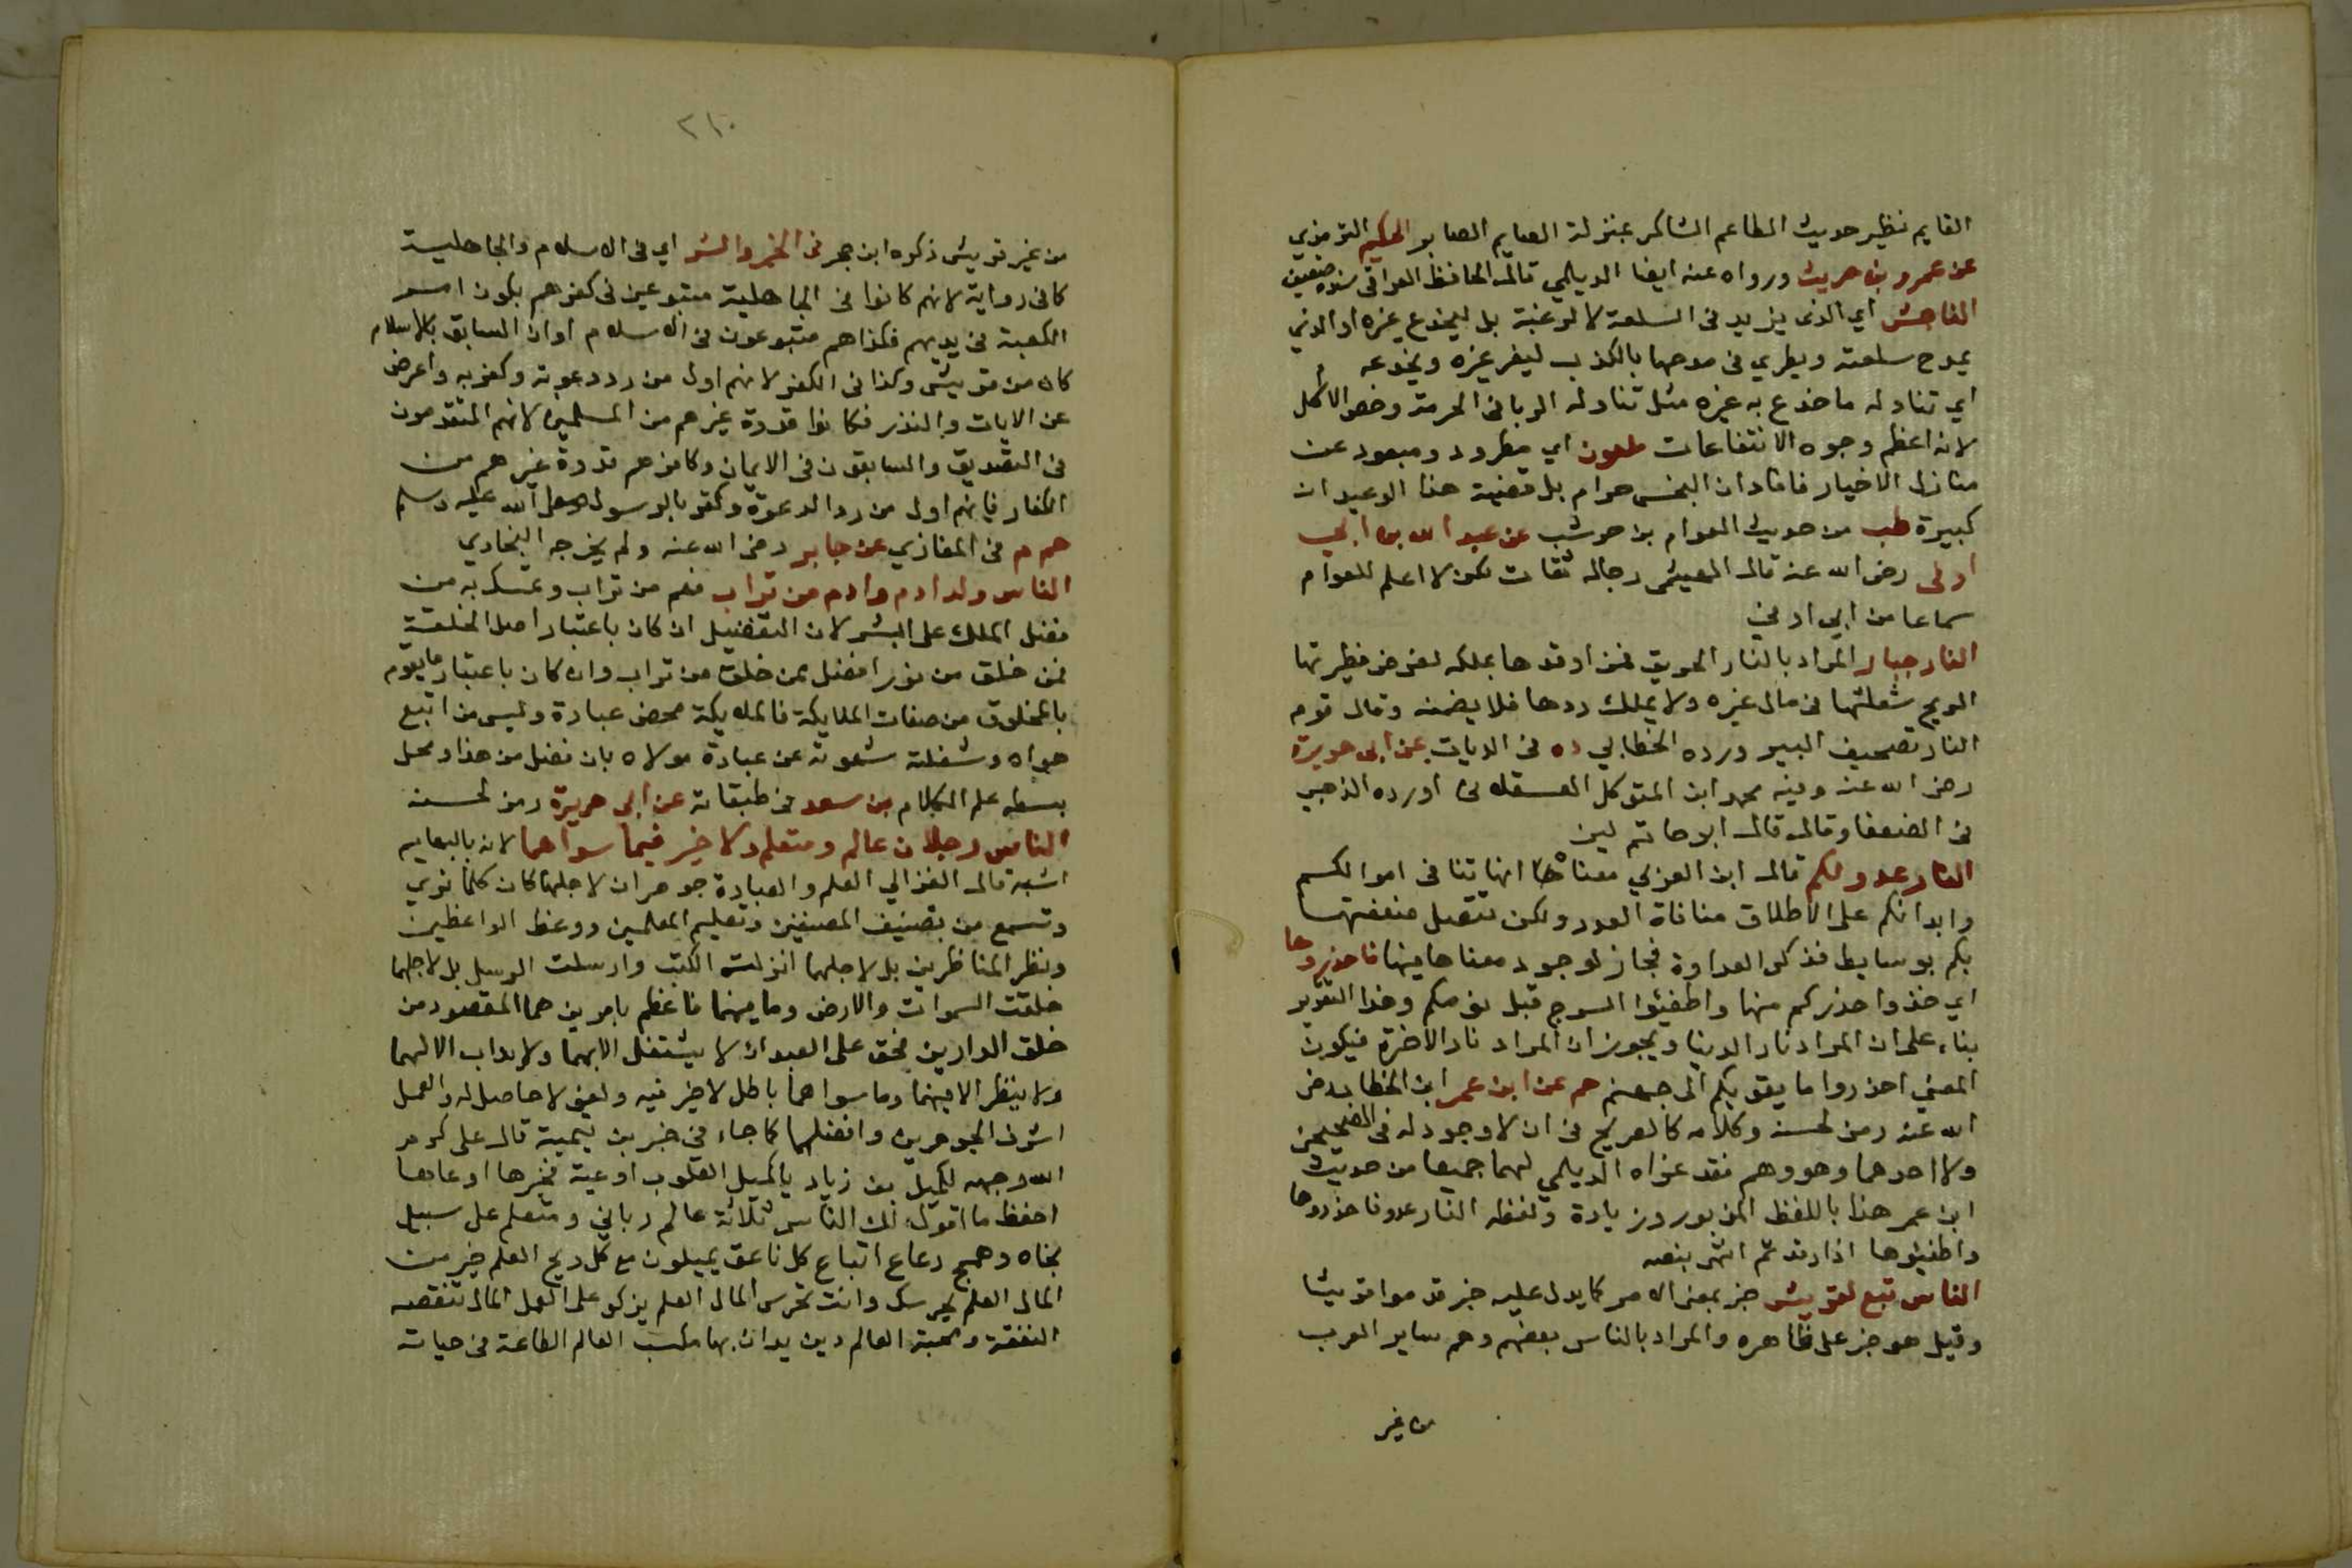 القايم نظير حديث الطاعم الشاكر بمنزلة الصايم الصابر الحكيم الترمذي
عن عمرو بن حريث ورواه عنه ايضا الديلمي قال الحافظ العراقي سنده ضعيف
الناجش اي الذي يزيد في السلعة لا لرغبة بل ليخدع غيره او الذي
يمدح سلعته ويطري في مدحها بالكذب ليغر غيره ويخدعه
اي تناوله ما خدع به غيره مثل تناوله الربا في الحرمة وخص الاكل
لانه اعظم وجوه الانتفاعات ملعون اي مطرود ومبعود عن
منازل الاخيار فافاد ان النجس حرام بل قضية هذا الوعيد انه
كبيرة طب من حديث العوام بن حوشب عن عبد الله بن ابي
اوفى رضي الله عنه قال الهيثمي رجاله ثقات لكن لا اعلم للعوام
سماعا من ابي اوفي
النار جبار المراد بالنار الحريق فمن اوقدها بملكه لغرض فطيرتها
الريح شعلتها في مال غيره ولا يملك ردها فلا يضمنه وقال قوم
النار تصحيف البير ورده الخطابي ده في الديات عن ابي هريرة
رضي الله عنه وفيه محمد ابن المتوكل العسقلاني اورده الذهبي
في الضعفا وقال قال ابو حاتم لين
النار عدو لكم قال ابن العربي معناه انها تنافي اموالكم
وابدانكم على الاطلاق منافاة العدو ولكن تتصل منفعتها
بكم بوسايط فذكر العداوة فجاز لوجود معناها فيها فاحذروها
اي خذوا حذركم منها واطفئوا السرج قبل نومكم وهذا التقرير
بناء على ان المراد نار الدنيا ويجوز ان المراد نار الاخرة فيكون
المعني احذروا ما يقربكم الى جهنم حم عن ابن عمر ابن الخطاب رضي
الله عنه رمز لحسنه وكلامه كالصريح في ان لا وجود له في الصحيحين
ولا احدهما وهو وهم فقد عزاه الديلمي لهما جميعا من حديث
ابن عمر هذا باللفظ المزبور وزيادة ولفظه النار عدو فاحذروها
واطفئوها اذا رقدتم انتهى بنصه
الناس تبع لقريش خبر بمعنى الامر كما يدل عليه خبر قدموا قريشا
وقيل هو خبر على ظاهره والمراد بالناس بعضهم وهم ساير العرب
من غير
٢١٠
من غير قريش ذكره ابن حجر في الخير والشر اي في الاسلام والجاهلية
كما في رواية لانهم كانوا في الجاهلية متبوعين في كفرهم بكون امر
الكعبة في يديهم فكذا هم متبوعون في الاسلام او ان السابق بالاسلام
كان من قريش وكذا في الكفر لانهم اول من رد دعوته وكفر به واعرض
عن الايات والنذر فكانوا قدوة غيرهم من المسلمين لانهم المتقدمون
في التصديق والسابقون في الايمان وكافرهم قدوة غيرهم من
الكفار فانهم اول من رد الدعوة وكفر بالرسول صلى الله عليه وسلم
حم م في المغازي عن جابر رضي الله عنه ولم يخرجه البخاري
الناس ولد ادم وادم من تراب فهم من تراب وتمسك به من
فضل الملك على البشر لان التفضيل ان كان باعتبار اصل الخلقة
فمن خلق من نور افضل ممن خلق من تراب وان كان باعتبار ما يقوم
بالمخلوق من صفات الملايكة فالملايكة محض عبادة وليس من اتبع
هواه وشغلته شهوته عن عبادة مولاه بان فضل من هذا ومحل
بسطه علم الكلام بن سعد في طبقاته عن ابي هريرة رمز لحسنه
الناس رجلان عالم ومتعلم ولا خير فيما سواهما لانه بالبهايم
اشبه قال الغزالي العلم والعبادة جوهران لاجلهما كان كلما نري
وتسمع من تصنيف المصنفين وتعليم المعلمين ووعظ الواعظين
ونظر المناظرين بل لاجلهما انزلت الكتب وارسلت الرسل بل لاجلهما
خلقت السموات والارض وما بينهما فاعظم بامرين هما المقصود من
خلق الدارين فحق على العبد ان لا يشتغل الا بهما ولا يداب الا لهما
ولا ينظر الا فيهما وما سواهما باطل لا خير فيه ولغو لا حاصل له والعلم
اشرف الجوهرين وافضلهما كما جاء في خبر بن تيمية قال علي كرم
الله وجهه لكميل بن زياد يا كميل القلوب اوعية فخيرها اوعاها
احفظ ما اقول لك الناس ثلاثة عالم رباني ومتعلم على سبيل
نجاه وهمج رعاع اتباع كل ناعق يميلون مع كل ريح العلم خير من
المال العلم يحرسك وانت تحرس المال العلم يزكو على العمل المال تنقصه
النفقة ومحبة العالم دين يدان بها مكسب العالم الطاعة في حياته